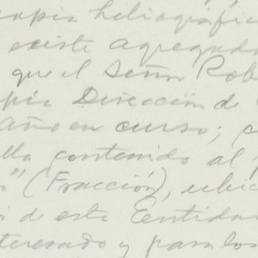 copia heliográfic
existe agregado
que el Señor Rob
pia Dirección de
año en curso; c
lla contenido al
s" (Fracción), ubic
s de esta Entidad
nteresado y para los